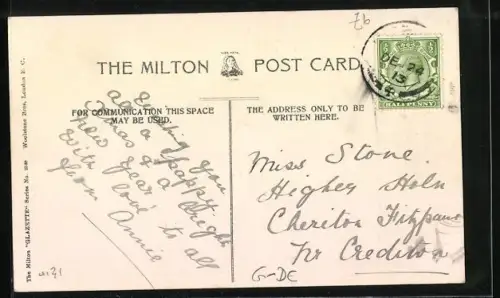 Z6
THE MILTON POST CARD
DE 24
13
HALFPENNY
FOR COMMUNICATION THIS SPACE
MAY BE USED.
Wishing you
all a Happy
Xmas & a Bright
New Year
With love to all
from Annie
THE ADDRESS ONLY TO BE
WRITTEN HERE.
Miss Stone
Higher Holn
Cheriton Fitzpaine
Nr Crediton
G-DE
The Milton "GLAZETTE" Series No.
Woolstone Bros., London E. C.